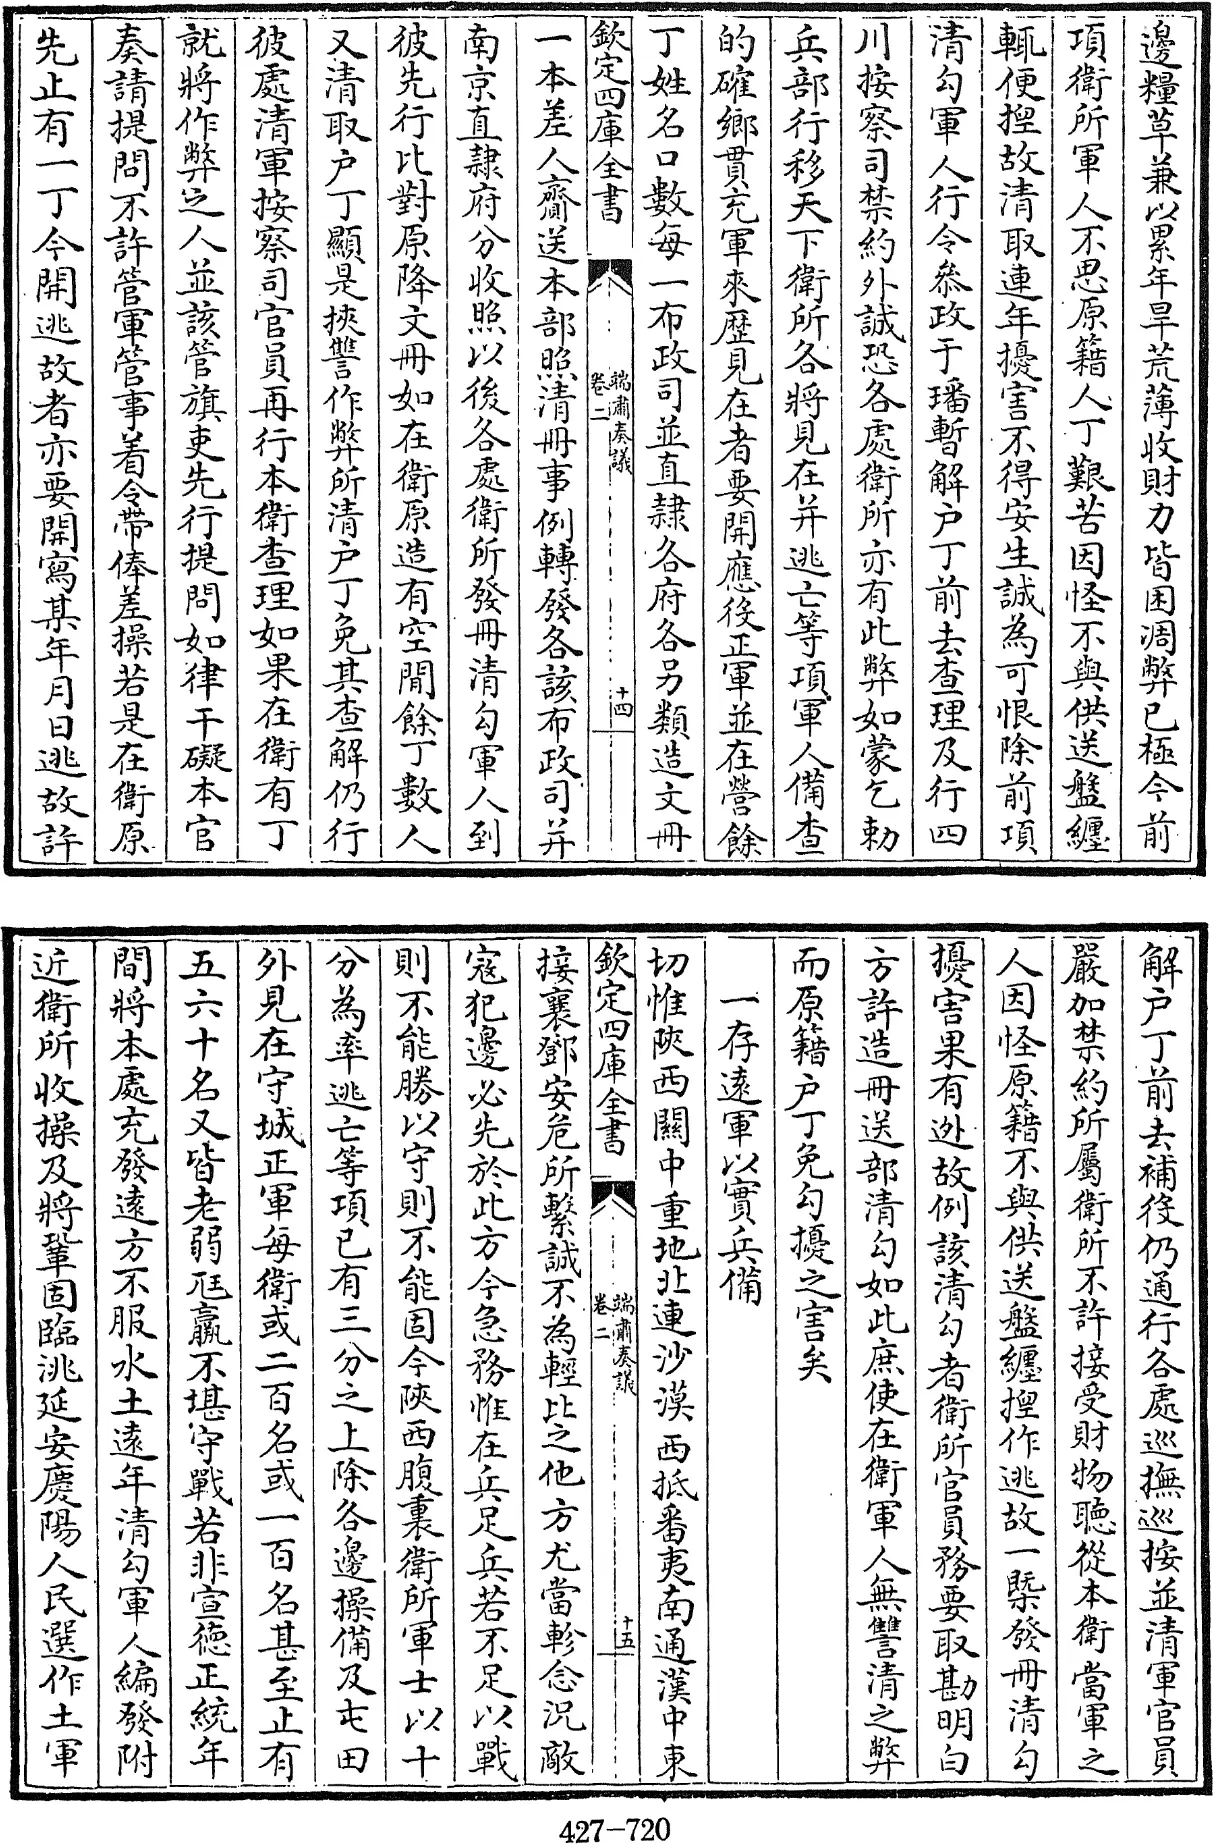 邊糧草兼以累年旱荒薄收財力皆困凋弊已極今前
項衛所軍人不思原籍人丁艱苦因怪不與供送盤纏
輒便揑故清取連年擾害不得安生誠為可恨除前項
清勾軍人行令叅政于璠暫解户丁前去查理及行四
川按察司禁約外誠恐各處衛所亦有此弊如蒙乞勅
兵部行移天下衛所各將見在并逃亡等項軍人備查
的確鄉貫充軍來歴見在者要開應役正軍並在營餘
丁姓名口數每一布政司並直隸各府各另類造文冊
欽定四庫全書
端肅奏議
卷二
十四
一本差人齎送本部照清冊事例轉發各該布政司并
南京直隸府分收照以後各處衛所發冊清勾軍人到
彼先行比對原降文冊如在衛原造有空閒餘丁數人
又清取户丁顯是挾讐作弊所清户丁免其查解仍行
彼處清軍按察司官員再行本衛查理如果在衛有丁
就將作弊之人並該管旗吏先行提問如律干礙本官
奏請提問不許管軍管事着令帶俸差操若是在衛原
先止有一丁今開逃故者亦要開寫某年月日逃故許
解户丁前去補役仍通行各處巡撫巡按並清軍官員
嚴加禁約所屬衛所不許接受財物聽從本衛當軍之
人因怪原籍不與供送盤纏揑作逃故一槩發冊清勾
擾害果有逃故例該清勾者衛所官員務要取勘明白
方許造冊送部清勾如此庶使在衛軍人無讐清之弊
而原籍户丁免勾擾之害矣
一存遠軍以實兵備
切惟陜西關中重地北連沙漠西抵番夷南通漢中東
欽定四庫全書
端肅奏議
卷二
十五
接襄鄧安危所繫誠不為輕比之他方尤當軫念況敵
寇犯邊必先於此方今急務惟在兵足兵若不足以戰
則不能勝以守則不能固今陜西腹裏衛所軍士以十
分為率逃亡等項已有三分之上除各邊操備及屯田
外見在守城正軍每衛或二百名或一百名甚至止有
五六十名又皆老弱尫羸不堪守戰若非宣德正統年
間將本處充發遠方不服水土遠年清勾軍人編發附
近衛所收操及將鞏固臨洮延安慶陽人民選作土軍
427-720